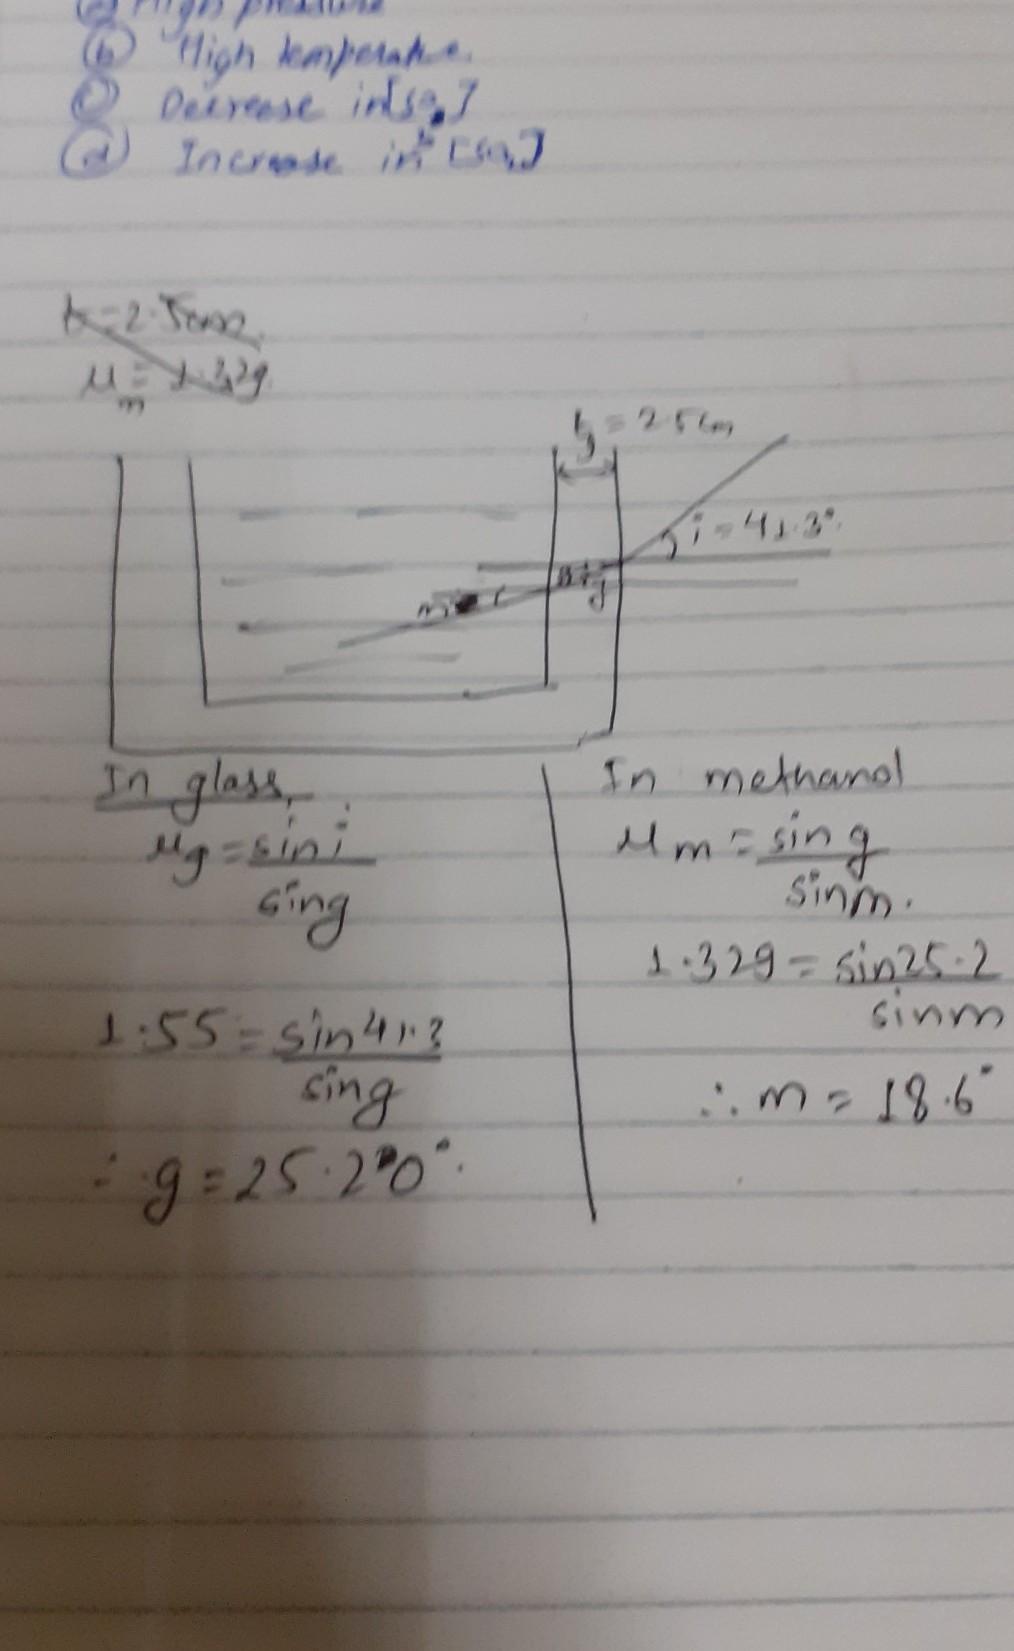 (a) High pressure
(b) High temperature.
(c) Decrease in [SO2]
(d) Increase in [SO3]
t = 2.5cm
μm = 1.329
tg = 2.5cm
i = 41.3°.
m
g
In glass,
μg = sin i / sin g
1.55 = sin 41.3 / sin g
∴ g = 25.20°.
In methanol
μm = sin g / sin m.
1.329 = sin 25.2 / sin m
∴ m = 18.6°